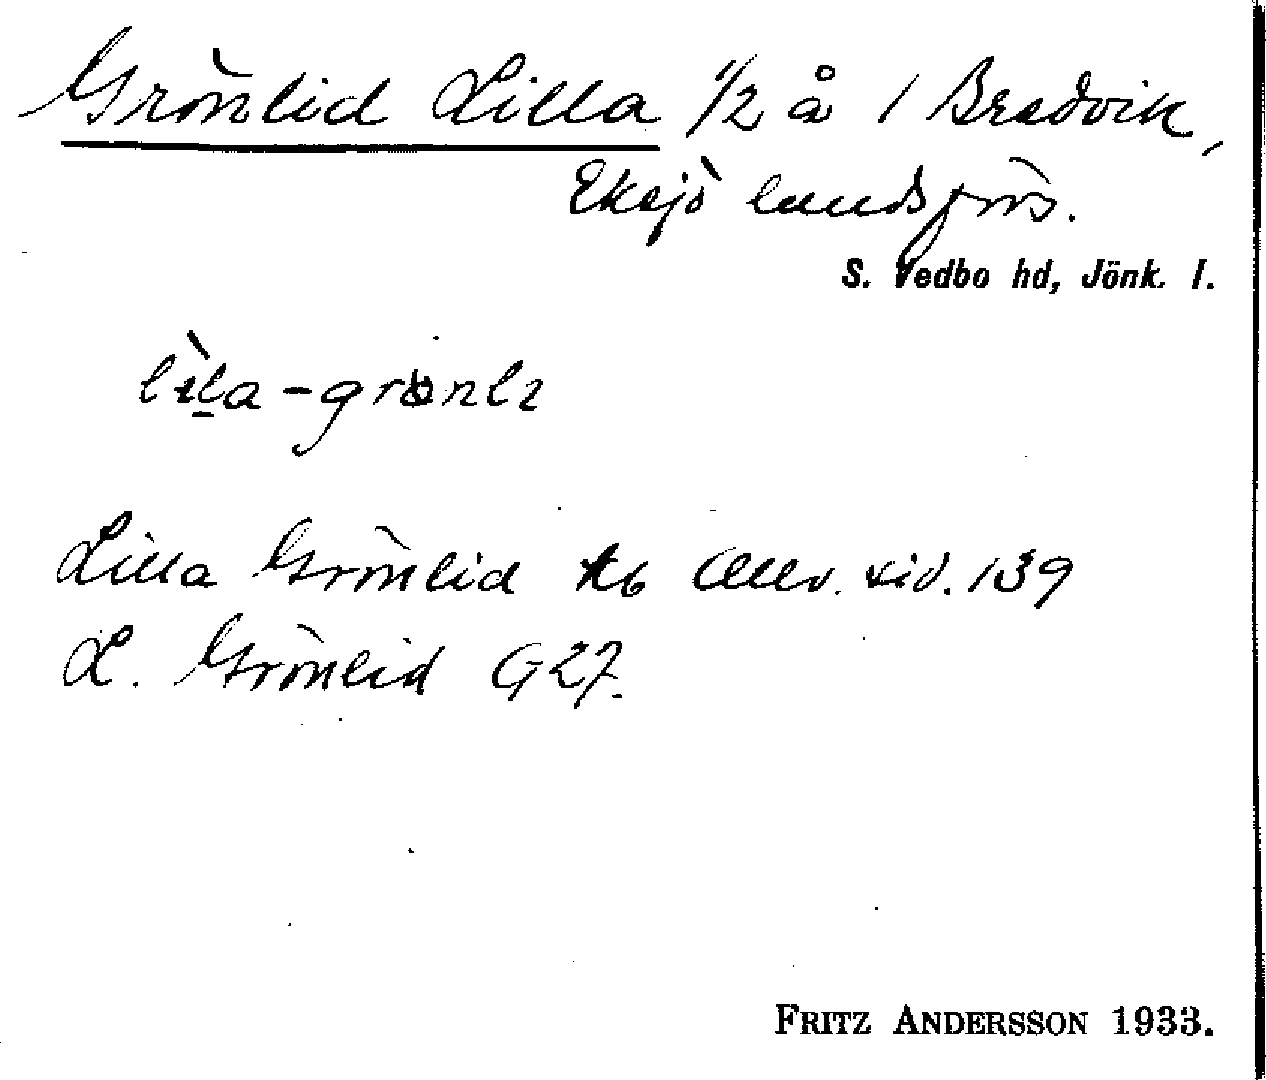 Grönlid Lilla 1/2 å 1 Bredvik,
Eksjö landsförs.
S. Vedbo hd, Jönk. l.
lila-grönlı
Lilla Grönlid Ab allv. sid. 139
L. Grönlid G 27.
FRITZ ANDERSSON 1933.